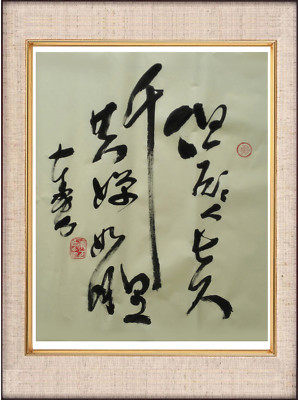 但愿人长久
千里
共婵娟